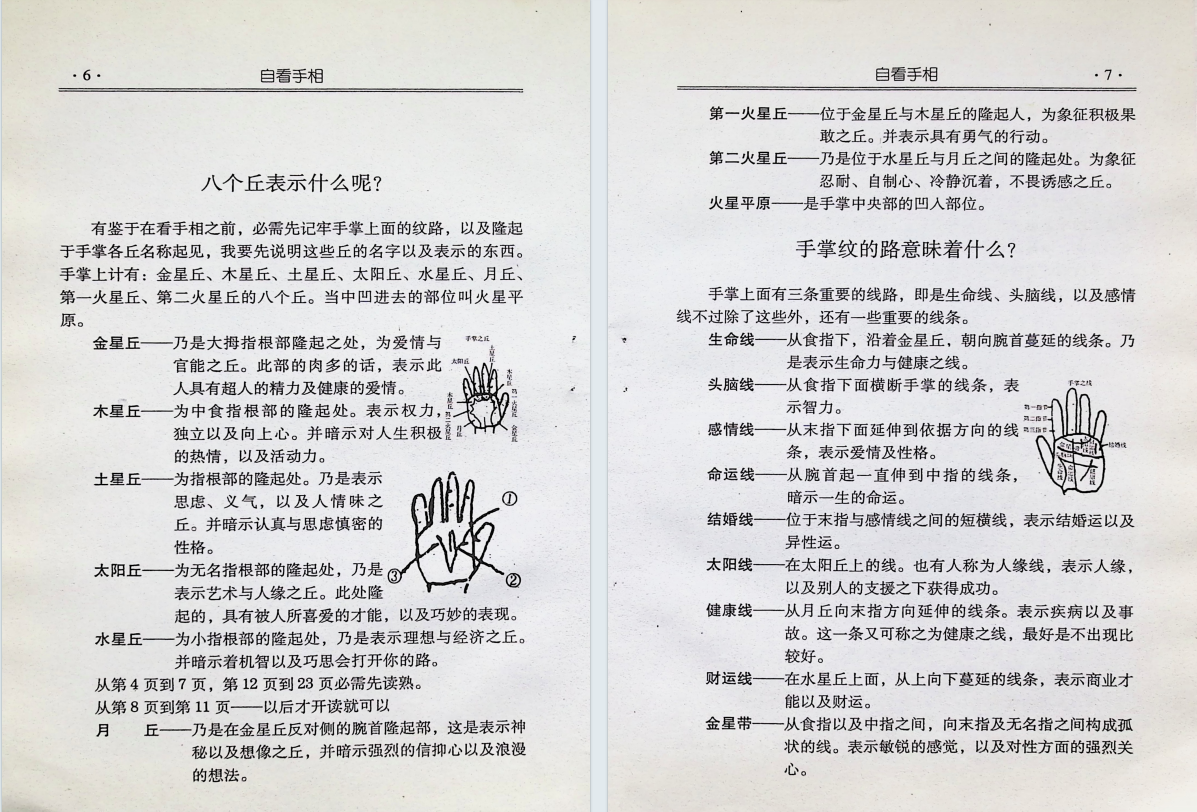 ·6·
自看手相
八个丘表示什么呢?
有鉴于在看手相之前，必需先记牢手掌上面的纹路，以及隆起
于手掌各丘名称起见，我要先说明这些丘的名字以及表示的东西。
手掌上计有：金星丘、木星丘、土星丘、太阳丘、水星丘、月丘、
第一火星丘、第二火星丘的八个丘。当中凹进去的部位叫火星平
原。
金星丘——乃是大拇指根部隆起之处，为爱情与
官能之丘。此部的肉多的话，表示此
人具有超人的精力及健康的爱情。
木星丘——为中食指根部的隆起处。表示权力，
独立以及向上心。并暗示对人生积极
的热情，以及活动力。
土星丘——为指根部的隆起处。乃是表示
思虑、义气，以及人情味之
丘。并暗示认真与思虑慎密的
性格。
太阳丘——为无名指根部的隆起处，乃是
表示艺术与人缘之丘。此处隆
起的，具有被人所喜爱的才能，以及巧妙的表现。
水星丘——为小指根部的隆起处，乃是表示理想与经济之丘。
并暗示着机智以及巧思会打开你的路。
从第4页到7页，第12页到23页必需先读熟。
从第8页到第11页——以后才开读就可以
月　丘——乃是在金星丘反对侧的腕首隆起部，这是表示神
秘以及想像之丘，并暗示强烈的信抑心以及浪漫
的想法。
手掌之丘
土星丘
太阳丘
木星丘
水星丘
第一火星丘
第二火星丘
月丘
金星丘
①
②
③
自看手相
·7·
第一火星丘——位于金星丘与木星丘的隆起人，为象征积极果
敢之丘。并表示具有勇气的行动。
第二火星丘——乃是位于水星丘与月丘之间的隆起处。为象征
忍耐、自制心、冷静沉着，不畏诱感之丘。
火星平原——是手掌中央部的凹入部位。
手掌纹的路意昧着什么?
手掌上面有三条重要的线路，即是生命线、头脑线，以及感情
线不过除了这些外，还有一些重要的线条。
生命线——从食指下，沿着金星丘，朝向腕首蔓延的线条。乃
是表示生命力与健康之线。
头脑线——从食指下面横断手掌的线条，表
示智力。
感情线——从末指下面延伸到依据方向的线
条，表示爱情及性格。
命运线——从腕首起一直伸到中指的线条，
暗示一生的命运。
结婚线——位于末指与感情线之间的短横线，表示结婚运以及
异性运。
太阳线——在太阳丘上的线。也有人称为人缘线，表示人缘，
以及别人的支援之下获得成功。
健康线——从月丘向末指方向延伸的线条。表示疾病以及事
故。这一条又可称之为健康之线，最好是不出现比
较好。
财运线——在水星丘上面，从上向下蔓延的线条，表示商业才
能以及财运。
金星带——从食指以及中指之间，向末指及无名指之间构成孤
状的线。表示敏锐的感觉，以及对性方面的强烈关
心。
手掌之线
第一指节
第二指节
第三指节
结婚线